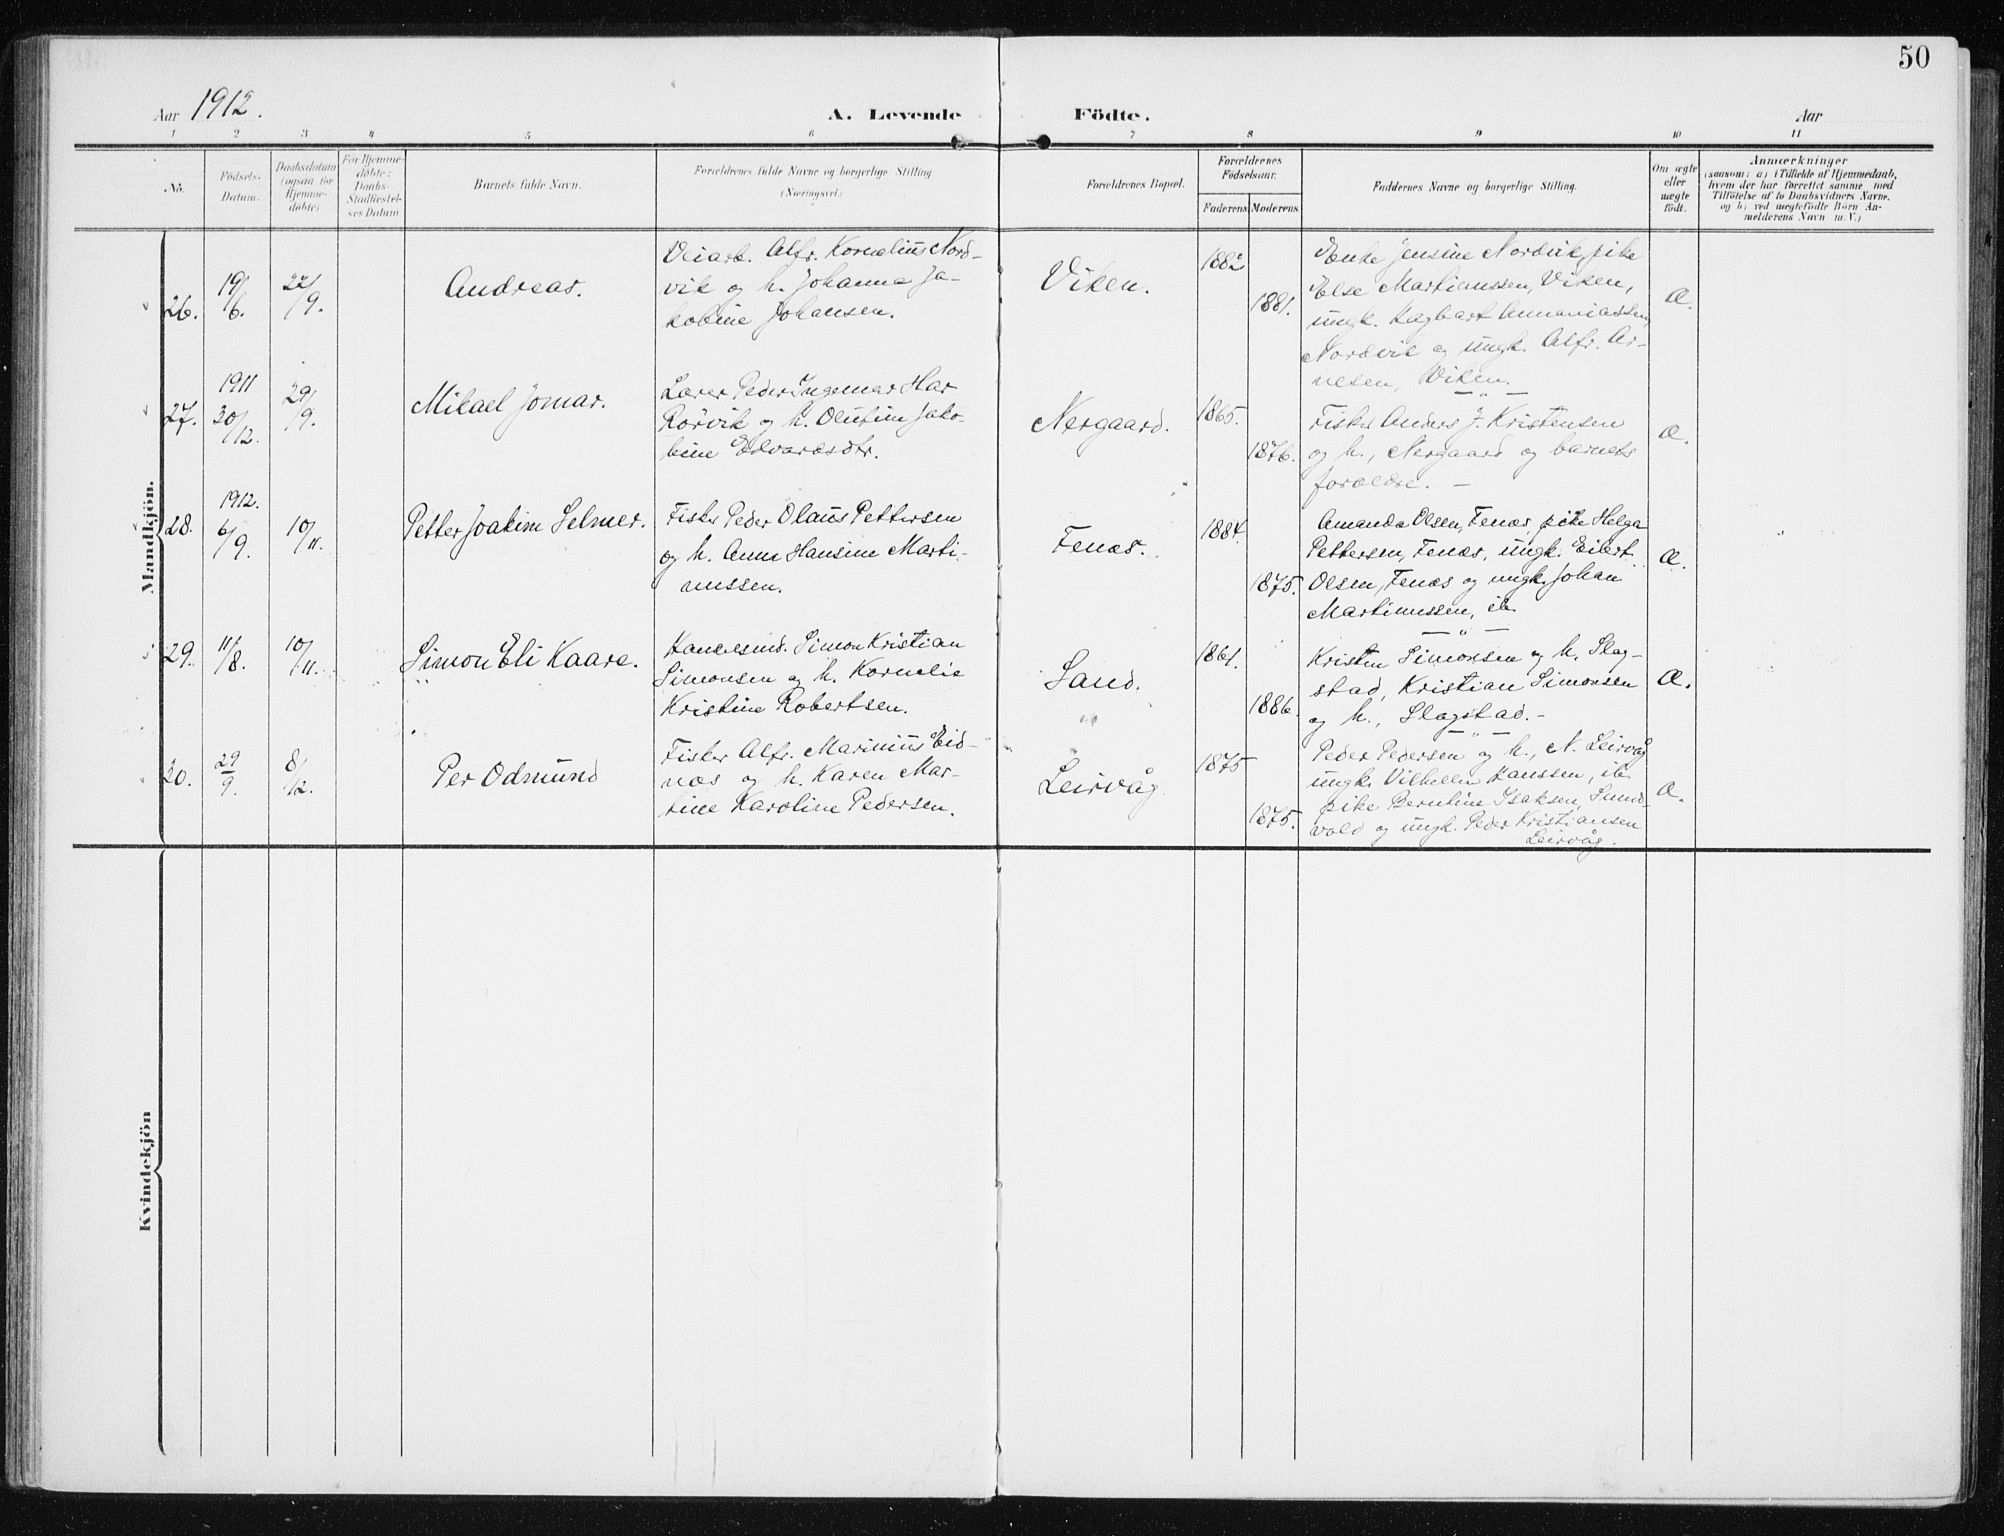 50
Aar 1912.
A. Levende Födte.
Aar
1 2 3 4 5 6 7 8 9 10 11
No.
Födsels-
Datum.
Daabsdatum
(ogsaa for
Hjemme-
döbte)
For Hjemme-
döbte:
Daabs-
Stadfæstel-
ses Datum
Barnets fulde Navn.
Forældrenes fulde Navne og borgerlige Stilling
(Næringsvei.)
Forældrenes Bopæl.
Forældrenes
Födselsaar.
Faderens Moderens
Faddernes Navne og borgerlige Stilling.
Om ægte
eller
uægte
födt.
Anmærkninger
(saasom: a) i Tilfælde af Hjemmedaab,
hvem der har forrettet samme med
Tilföielse af to Daabsvidners Navne.
og b) ved uægtefödte Börn An-
melderens Navn m. V.)
Mandkjön.
26.
19/6.
22/9.
Andreas.
Veiarb. Alfr. Kornelius Nord-
vik og h. Johanna Ja-
kobine Johansen.
Viken.
1882
1881.
Enke Jensine Nordvik, pike
Else Martinussen, Viken,
ungk. Hagbart Annaniassen,
Nordvik og ungk. Alfr. Ar-
nesen, Viken.
Æ.
27.
1911
30/12.
29/9.
Mikael Jomar.
Lærer Peder Ingemar Har
Rörvik og h. Olufine Jako-
bine Edvardsdtr.
Nergaard.
1865.
1876.
Fisker Anders J. Kristensen
og h., Nergaard og barnets
forældre. —
Æ.
28.
1912.
6/9.
10/11.
Petter Joakim Selmer.
Fisker Peder Olaus Pettersen
og h. Anna Hansine Marti-
nussen.
Fenæs.
1884.
1875.
Amanda Olsen, Fenæs, pike Helga
Pettersen, Fenæs, ungk. Eilert
Olsen, Fenæs og ungk. Johan
Martinussen, ib.
Æ.
29.
11/8.
10/11.
Simon Eli Kaare.
Handelsmd. Simon Kristian
Simonsen og h. Kornelie
Kristine Robertsen.
Sand.
1861.
1886.
Kristen Simonsen og h. Slag-
stad, Kristian Simonsen
og h., Slagstad. -
Æ.
30.
29/9.
8/12.
Per Odmund
Fisker Alfr. Marinius Eid-
næs og h. Karen Mar-
tine Karoline Pedersen.
Leirvåg
1875
1875.
Peder Pedersen og h., N. Leirvåg
ungk. Vilhelm Hanssen, ib.
pike Berntine Isaksen, Sund-
vold og ungk. Peder Kristiansen
Leirvåg.
Æ.
Kvindekjön